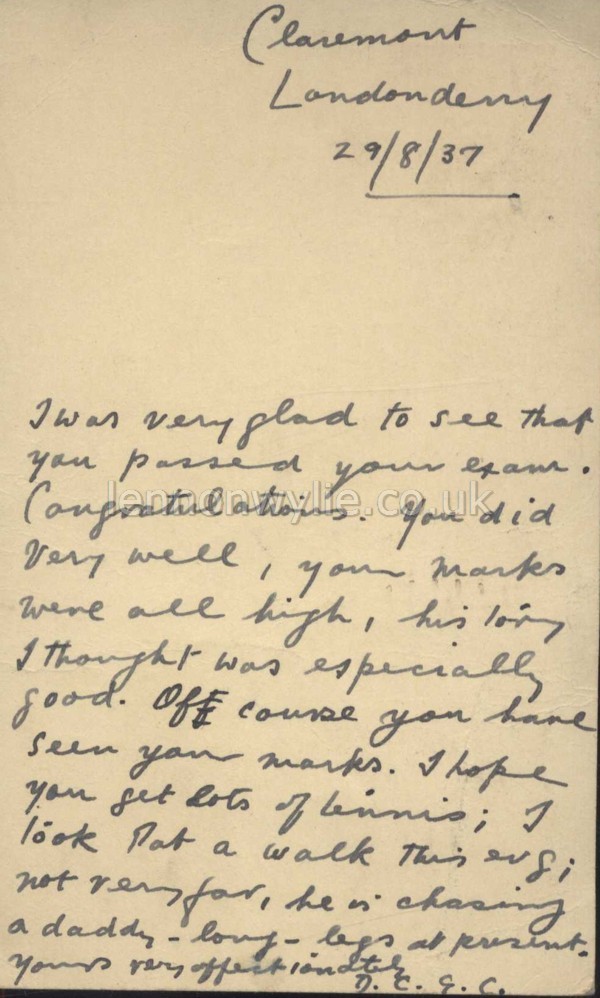 Claremont
Londonderry
29/8/37
I was very glad to see that
you passed your exam.
lennonwylie.co.uk
Congratulations. You did
very well, your marks
were all high, history
I thought was especially
good. Off course you have
seen your marks. I hope
you get lots of tennis; I
took Pat a walk this evg;
not very far, he is chasing
a daddy-long-legs at present.
Yours very affectionately
D. C. G. C.